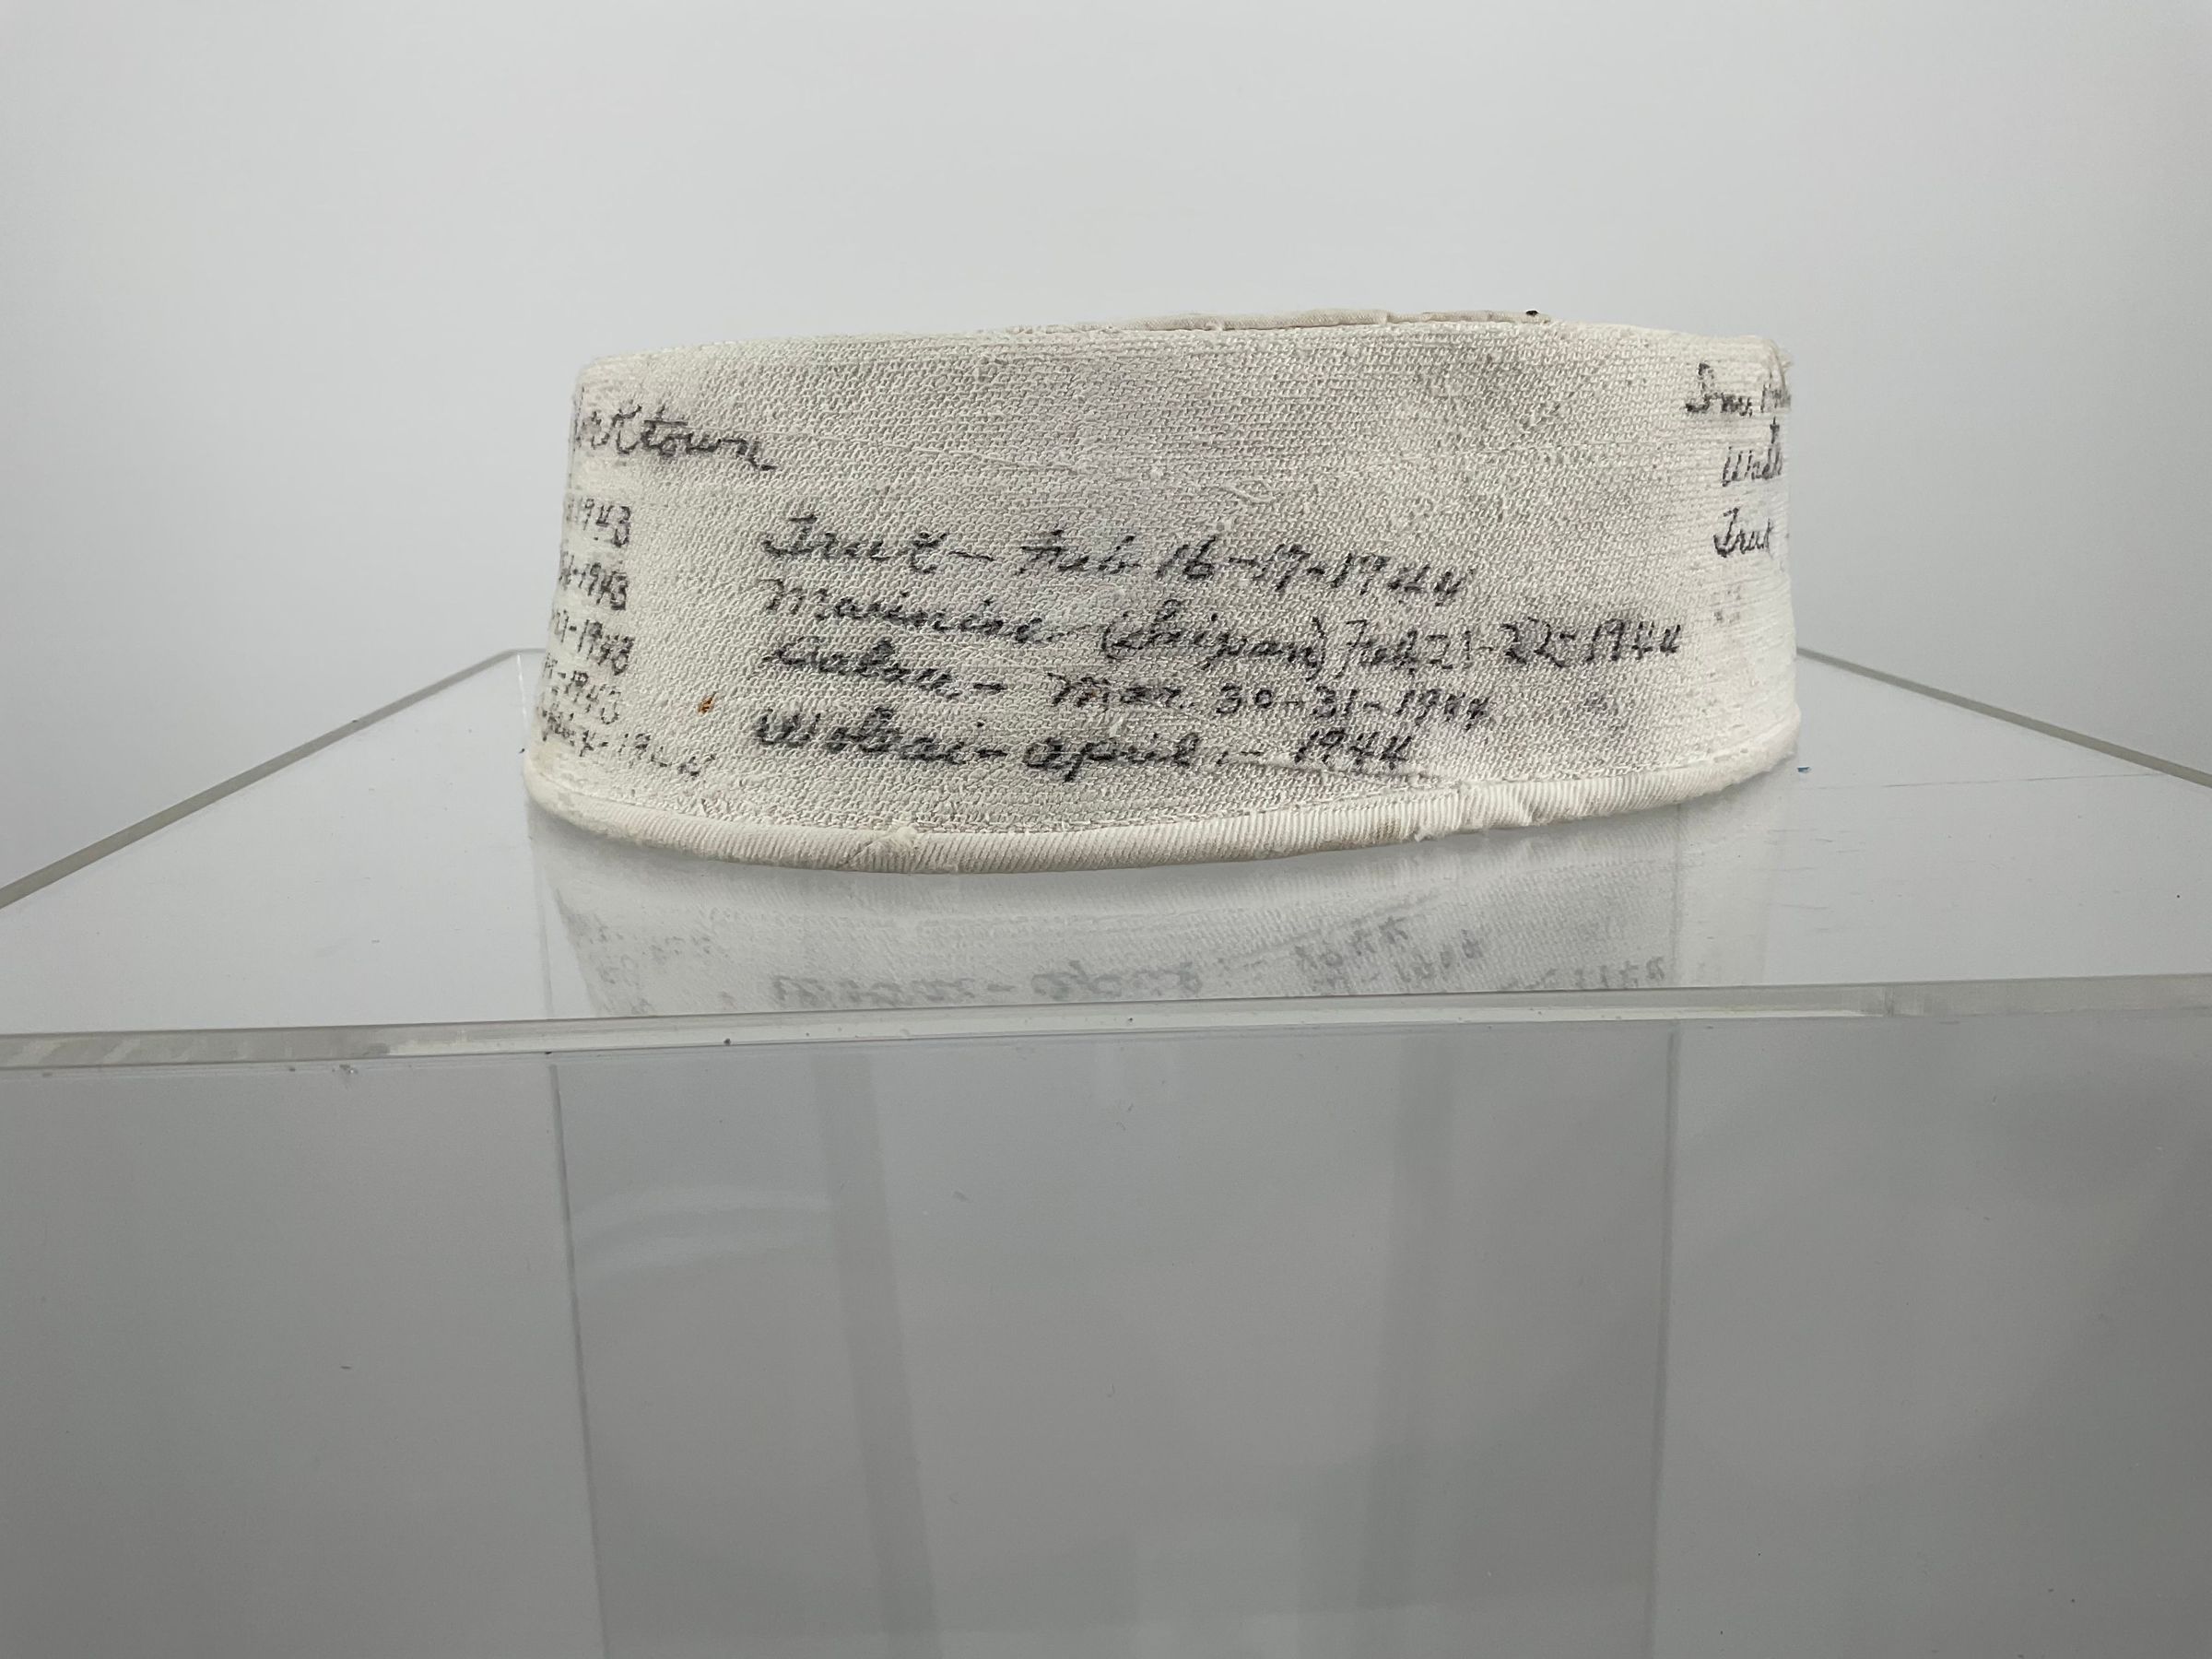 rktown
1943
-1943
21-1943
-1943
Truk - Feb 16-17-1944
Marinise (Saipan) Feb 21-22-1944
Palau - Mar. 30-31-1944
Woleai - April, - 1944
Truk -